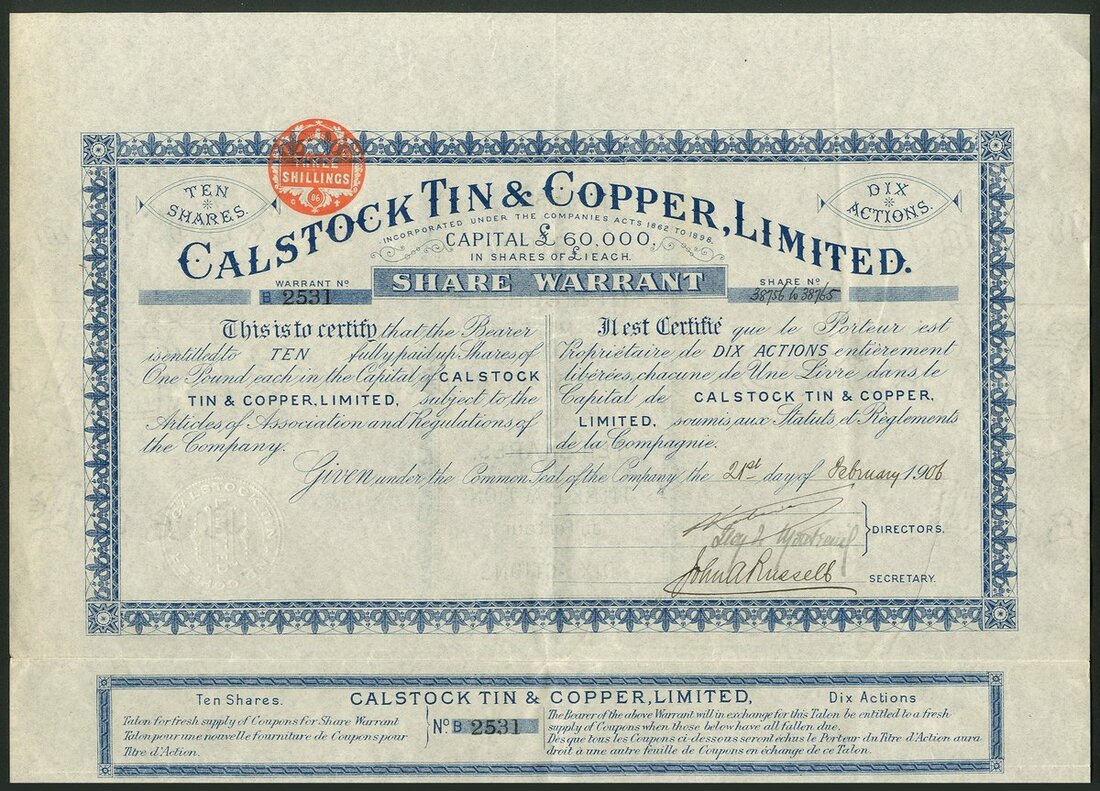 THREE
SHILLINGS
06
TEN
SHARES.
DIX
ACTIONS.
CALSTOCK TIN & COPPER, LIMITED.
INCORPORATED UNDER THE COMPANIES ACTS 1862 TO 1898.
CAPITAL £ 60,000,
IN SHARES OF £1 EACH.
WARRANT Nº
B 2531
SHARE WARRANT
SHARE Nº
38756 to 38765
This is to certify that the Bearer
is entitled to TEN fully paid up Shares of
One Pound each in the Capital of CALSTOCK
TIN & COPPER, LIMITED, subject to the
Articles of Association and Regulations of
the Company.
Il est Certifié que le Porteur est
Propriétaire de DIX ACTIONS entièrement
libérées, chacune de Une Livre dans le
Capital de CALSTOCK TIN & COPPER,
LIMITED, soumis aux Statuts et Règlements
de la Compagnie.
Given under the Common Seal of the Company the 21st day of February 1906
DIRECTORS.
John A Russell
SECRETARY.
Ten Shares.
CALSTOCK TIN & COPPER, LIMITED,
Dix Actions
Talon for fresh supply of Coupons for Share Warrant
Talon pour une nouvelle fourniture de Coupons pour
Titre d'Action.
Nº B 2531
The Bearer of the above Warrant will in exchange for this Talon be entitled to a fresh
supply of Coupons when those below have all fallen due.
Dès que tous les Coupons ci-dessous seront échus le Porteur du Titre d'Action aura
droit à une autre feuille de Coupons en échange de ce Talon.